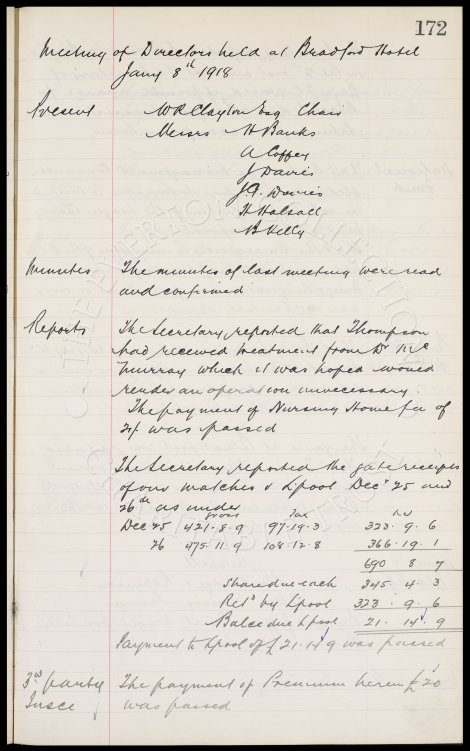 172
Meeting of Directors held at Bradford Hotel
Jany 8th 1918
Present W R Clayton Esq Chair
Messrs H Banks
A Coffey
J Davies
J. G. Davies
H Halsall
B Kelly
Minutes The minutes of last meeting were read
and confirmed
Reports The Secretary reported that Thompson
had received treatment from Dr
Murray which it was hoped would
render an operation unnecessary.
The payment of Nursing Home fee of
was passed
The Secretary reported the gate receipts
of our matches v Lpool Decr 25 and
26th as under
Gross Tax
Dec 25 421. 8. 9 97. 19. 3 323. 9. 6
26 475. 11. 9 108. 12. 8 366. 19. 1
690 8 7
Share due each 345. 4. 3
Retd by Lpool 323. 9. 6
Balce due Lpool 21. 14. 9
Payment to Lpool of £21. 14. 9 was passed
3rd party The payment of Premium herein £20
Insce was passed
THE EVERTON COLLECTION